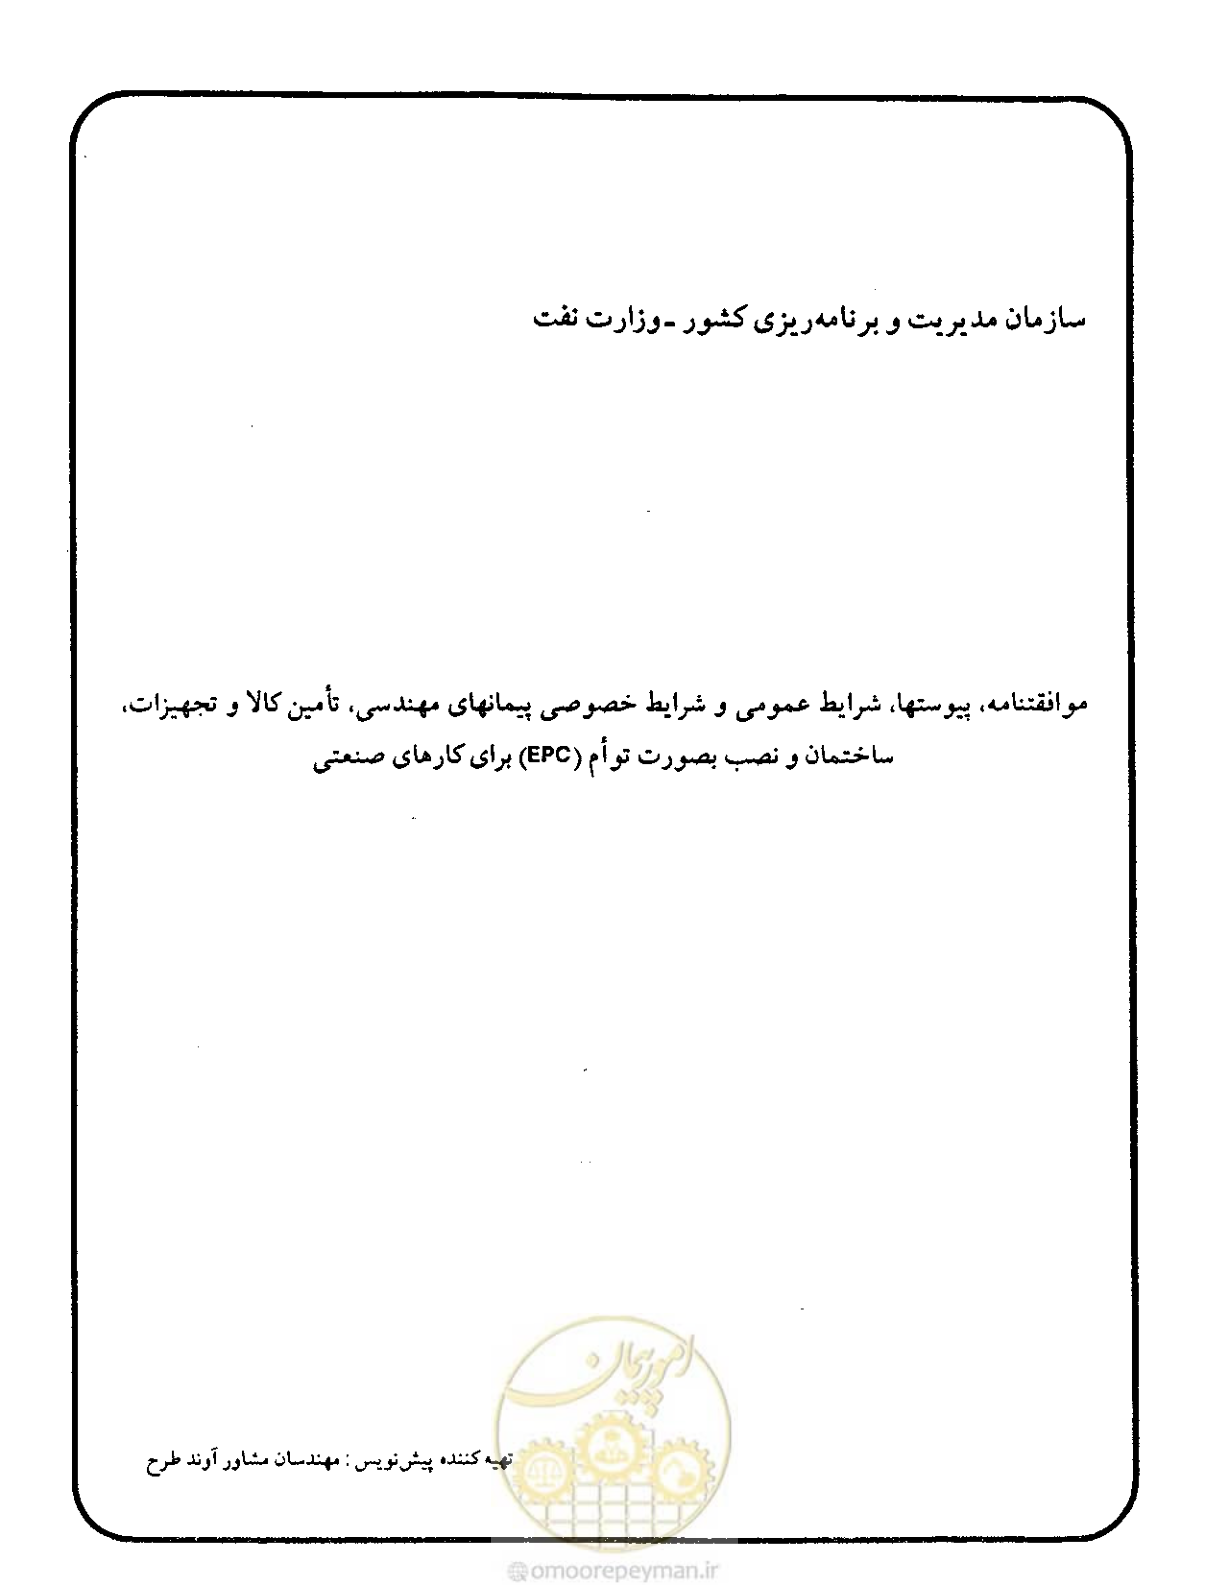 سازمان مدیریت و برنامه‌ریزی کشور - وزارت نفت
موافقتنامه، پیوستها، شرایط عمومی و شرایط خصوصی پیمانهای مهندسی، تأمین کالا و تجهیزات،
ساختمان و نصب بصورت توأم (EPC) برای کارهای صنعتی
امور پیمان
تهیه کننده پیش‌نویس : مهندسان مشاور آوند طرح
@omoorepeyman.ir